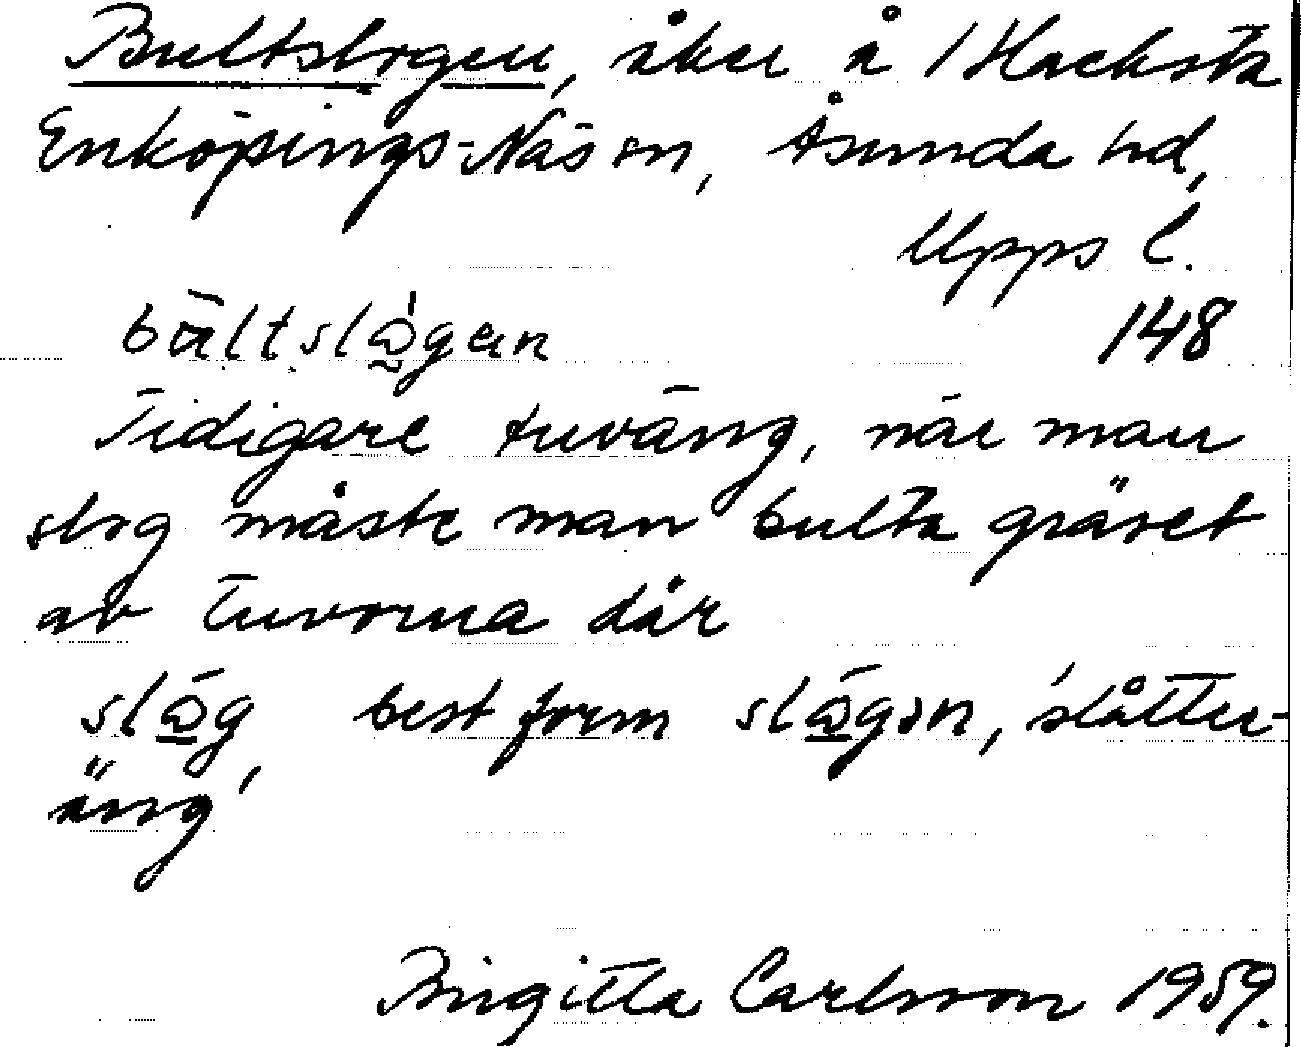 Bultslogen, åker å 1 Hacksta
Enköpings-Näs sn, Åsunda hd,
Upps l.
148
Tidigare tuväng, när man
slog måste man bulta gräset
av tuvorna där
slǭg best form slǭgən, 'slåtter-
äng'
Birgitta Carlsson 1959.